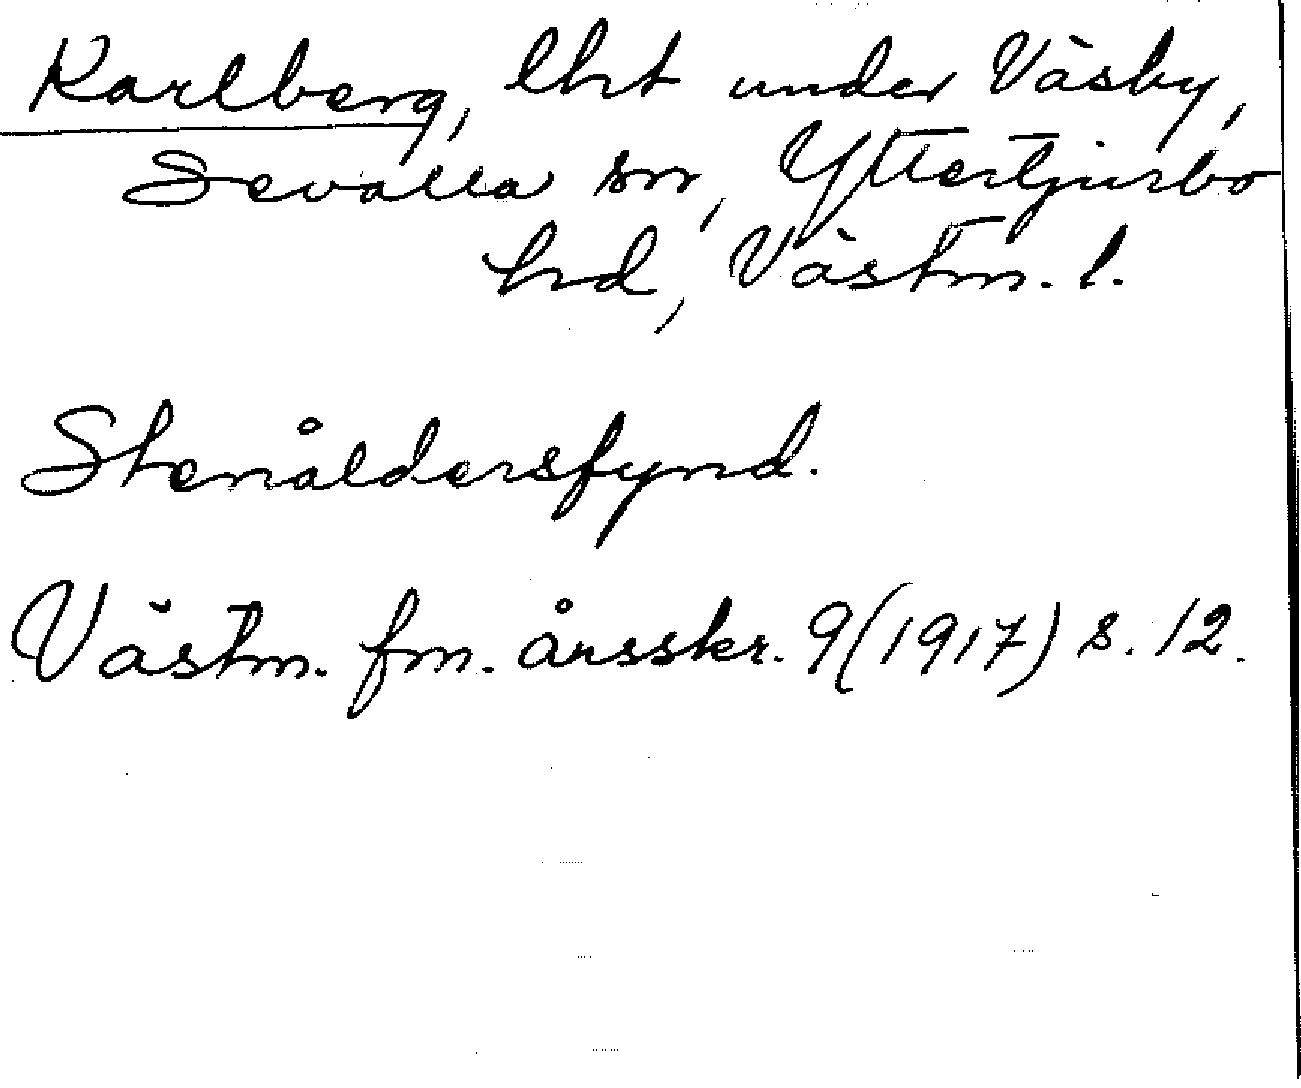 Karlberg, lht under Väsby,
Sevalla sn, Yttertjurbo
hd, Västm. l.
Stenåldersfynd.
Västm. fm. årsskr. 9 (1917) s. 12.